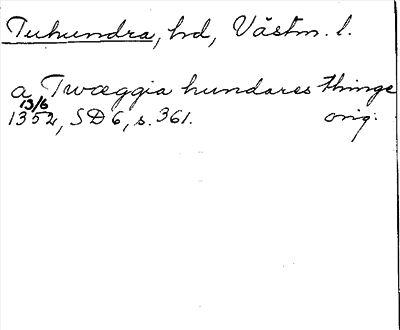 Tuhundra, hd, Västm. l.
a Twæggia hundares thinge
13/6
1352, SD 6, s. 361. orig.